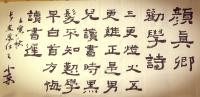 顏真卿
勸學詩
三更燈火五
更雞正是男
兒讀書時黑
髮不知勤學
早白首方悔
讀書遲